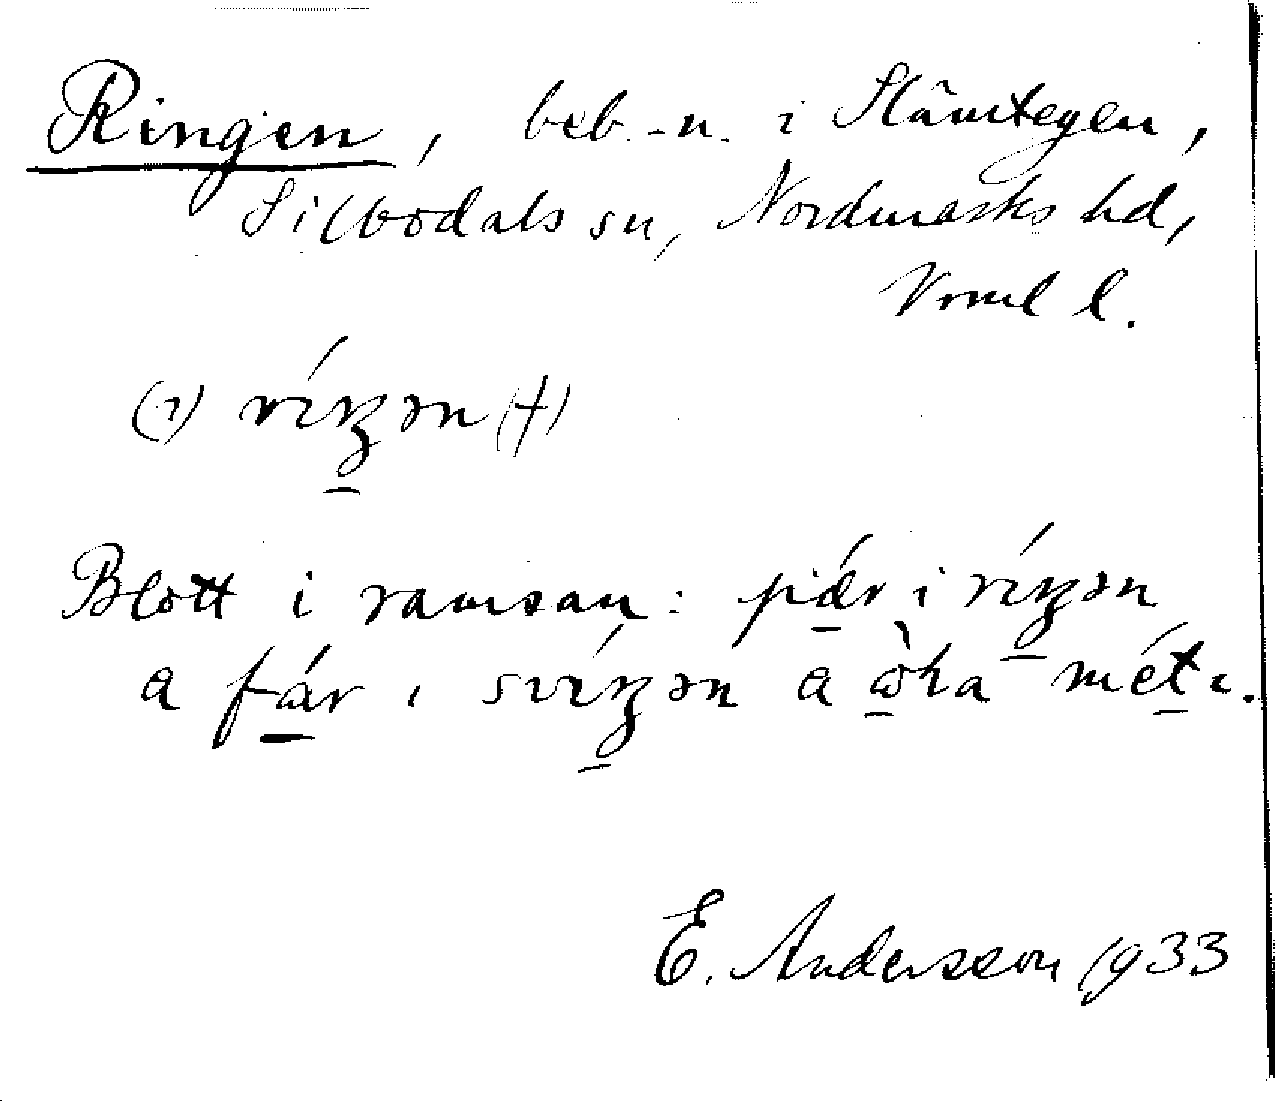 Ringen, beb.-n. i Slämtegen,
Silbodals sn, Nordmarks hd,
Vrml l.
(1) ríŋən (†)
Blott i ramsan: pär i ríŋən
a fár ɩ svíŋən a ὼka métɩ.
E. Andersson 1933